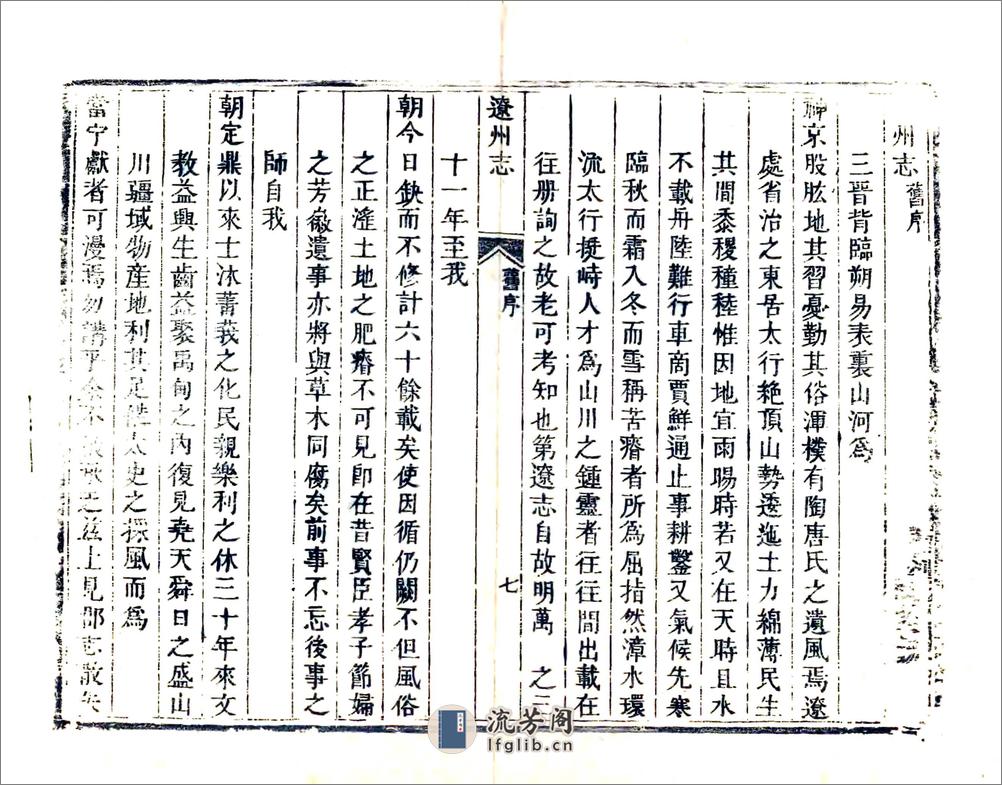 州志舊序
三晉背臨朔易表裏山河為
神京股肱地其習憂勤其俗渾樸有陶唐氏之遺風焉遼
處省治之東居太行絶頂山勢逶迤土力綿薄民生
其間黍稷穜稑惟因地宜雨暘時若又在天時且水
不載舟陸難行車商賈鮮通止事耕鑿又氣候先寒
臨秋而霜入冬而雪稱苦瘠者所為屈指然漳水環
流太行挺峙人才為山川之鍾靈者往往間出載在
往册詢之故老可考知也第遼志自故明萬 之三
遼州志
舊序
七
十一年至我
朝今日缺而不修計六十餘載矣使因循仍闕不但風俗
之正淮土地之肥瘠不可見即在昔賢臣孝子節婦
之芳徽遺事亦將與草木同腐矣前事不忘後事之
師自我
朝定鼎以來士沐菁莪之化民親樂利之休三十年來文
教益興生齒益聚禹甸之內復見堯天舜日之盛山
川疆域物産地利其足供太史之採風而為
當宁獻者可漫焉勿講乎余不敏承乏茲土見郡志散失
流芳阁
lfglib.cn